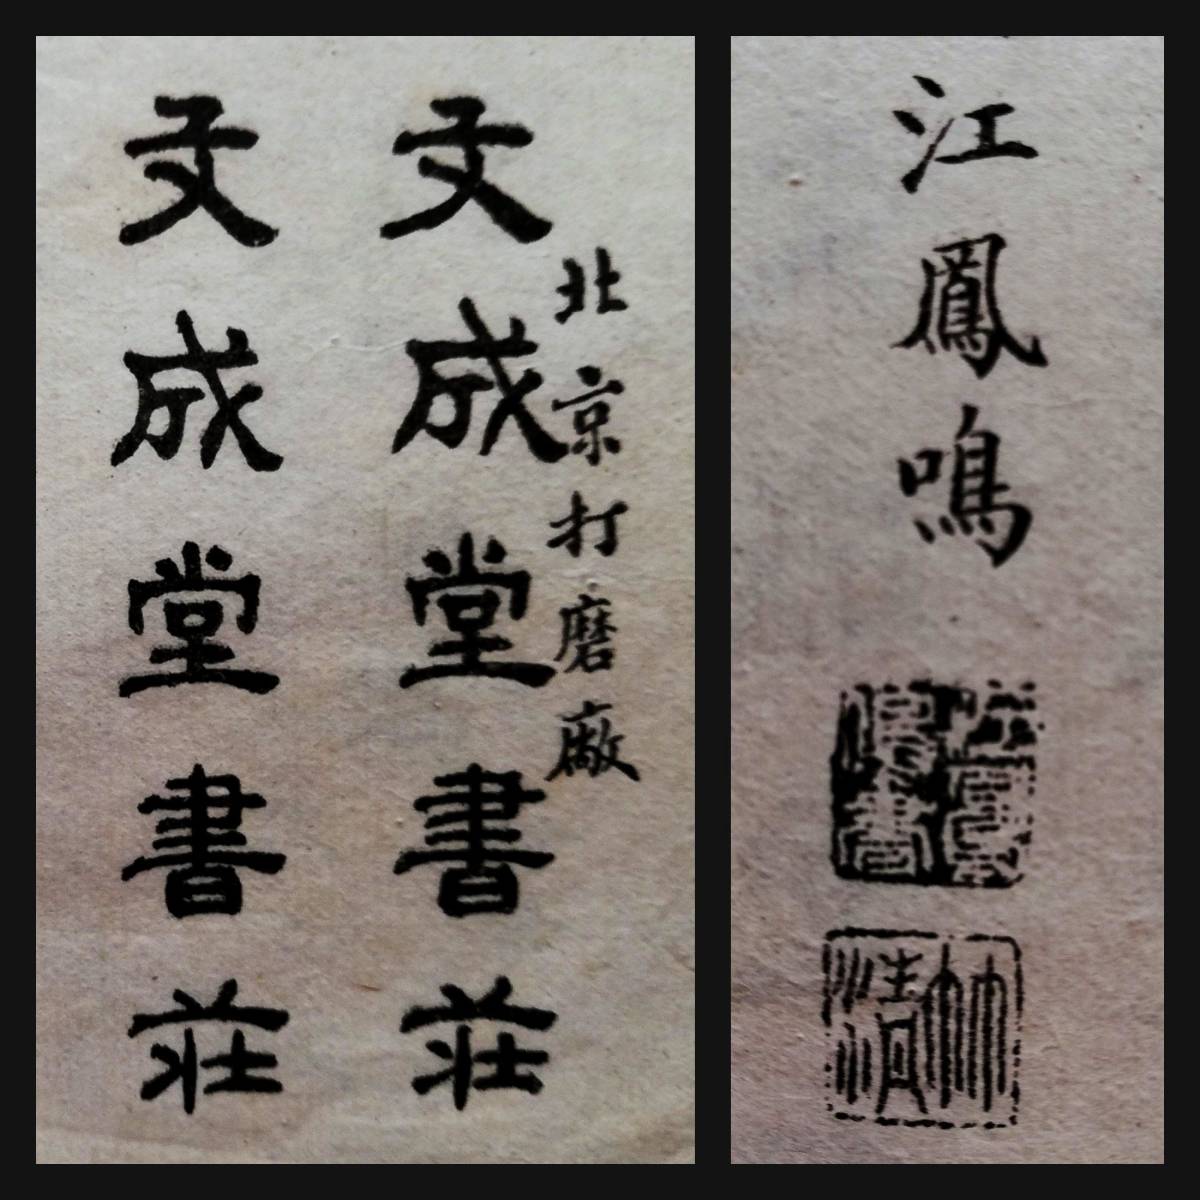 北京打磨廠
文成堂書莊
文成堂書莊
江鳳鳴